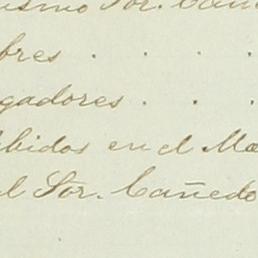 ismo Sor. Cañe
bres . . .
gadores . . .
ibidos en el Ma
el Sor. Cañedo